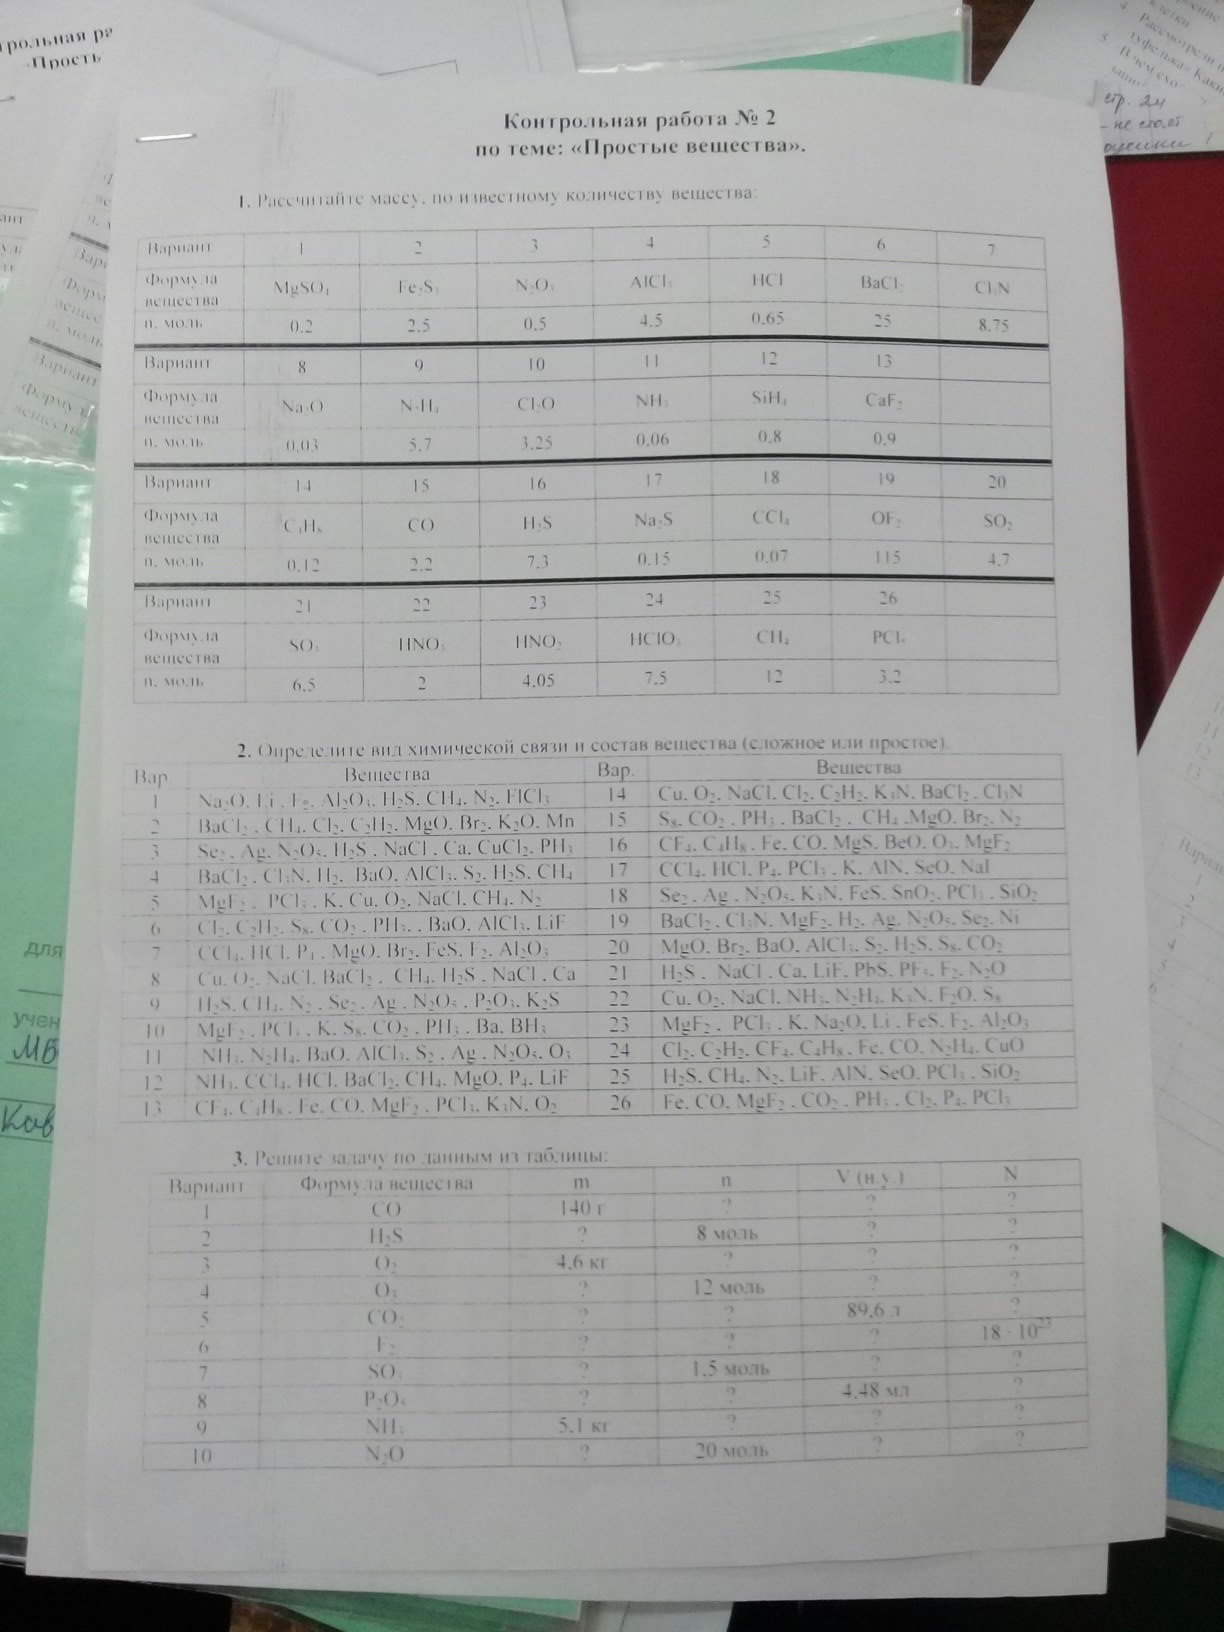 Контрольная работа № 2
по теме: «Простые вещества».
1. Рассчитайте массу, по известному количеству вещества:
Вариант 1 2 3 4 5 6 7
Формула вещества MgSO₄ Fe₂S₃ N₂O₃ AlCl₃ HCl BaCl₂ Cl₃N
n, моль 0.2 2.5 0.5 4.5 0,65 25 8.75
Вариант 8 9 10 11 12 13
Формула вещества Na₂O N₂H₄ Cl₂O NH₃ SiH₄ CaF₂
n, моль 0,03 5.7 3.25 0.06 0.8 0.9
Вариант 14 15 16 17 18 19 20
Формула вещества C₄H₈ CO H₂S Na₂S CCl₄ OF₂ SO₂
n, моль 0.12 2.2 7.3 0.15 0.07 115 4.7
Вариант 21 22 23 24 25 26
Формула вещества SO₃ HNO₃ HNO₂ HClO₃ CH₄
n, моль 6.5 2 4.05 7.5 12 3.2
2. Определите вид химической связи и состав вещества (сложное или простое).
Вар. Вещества Вар. Вещества
1 Na₂O, Li , Fe, Al₂O₃, H₂S, CH₄, N₂, FlCl₃ 14 Cu, O₂, NaCl, Cl₂, C₂H₂, K₃N, BaCl₂ , Cl₃N
2 BaCl₂ , CH₄, Cl₂, C₂H₂, MgO, Br₂, K₂O, Mn 15 S₈, CO₂ , PH₃ , BaCl₂ , CH₄ ,MgO, Br₂, N₂
3 Se₂ , Ag, N₂O₅, H₂S , NaCl , Ca, CuCl₂, PH₃ 16 CF₄, C₄H₈ , Fe, CO, MgS, BeO, O₃, MgF₂
4 BaCl₂ , Cl₃N, H₂, BaO, AlCl₃, S₂, H₂S, CH₄ 17 CCl₄, HCl, P₄, PCl₃ , K, AlN, SeO, NaI
5 MgF₂ , PCl₃ , K, Cu, O₂, NaCl, CH₄, N₂ 18 Se₂ , Ag , N₂O₅, K₃N, FeS, SnO₂, PCl₃ , SiO₂
6 Cl₂, C₂H₂, S₈, CO₂ , PH₃, , BaO, AlCl₃, LiF 19 BaCl₂ , Cl₃N, MgF₂, H₂, Ag, N₂O₅, Se₂, Ni
7 CCl₄, HCl, P₄ , MgO, Br₂, FeS, F₂, Al₂O₃ 20 MgO, Br₂, BaO, AlCl₃, S₂, H₂S, S₈, CO₂
8 Cu, O₂, NaCl, BaCl₂ , CH₄, H₂S , NaCl , Ca 21 H₂S , NaCl , Ca, LiF, PbS, PF₅, F₂, N₂O
9 H₂S, CH₄, N₂ , Se₂ , Ag , N₂O₅ , P₂O₃, K₂S 22 Cu, O₂, NaCl, NH₃, N₂H₄, K₃N, F₂O, S₈
10 MgF₂ , PCl₃ , K, S₈, CO₂ , PH₃ , Ba, BH₃ 23 MgF₂ , PCl₃ , K, Na₂O, Li , FeS, F₂, Al₂O₃
11 NH₃, N₂H₄, BaO, AlCl₃, S₂ , Ag , N₂O₅, O₃ 24 Cl₂, C₂H₂, CF₄, C₄H₈ , Fe, CO, N₂H₄, CuO
12 NH₃, CCl₄, HCl, BaCl₂, CH₄, MgO, P₄, LiF 25 H₂S, CH₄, N₂, LiF, AlN, SeO, PCl₃ , SiO₂
13 CF₄, C₄H₈ , Fe, CO, MgF₂ , PCl₃, K₃N, O₂ 26 Fe, CO, MgF₂ , CO₂ , PH₃ , Cl₂, P₄, PCl₃
3. Решите задачу по данным из таблицы:
Вариант Формула вещества m n V (н.у.) N
1 CO 140 г ? ? ?
2 H₂S ? 8 моль ? ?
3 O₂ 4,6 кг ? ? ?
4 O₃ ? 12 моль ? ?
5 CO₂ ? ? 89,6 л ?
6 F₂ ? ? ? 18 · 10²³
7 SO₃ ? 1,5 моль ? ?
8 ? ? 4,48 мл ?
9 NH₃ 5,1 кг ? ? ?
10 N₂O ? 20 моль ? ?
стр. 24
- не стоят
оценки
для
учен
МБ
Ков